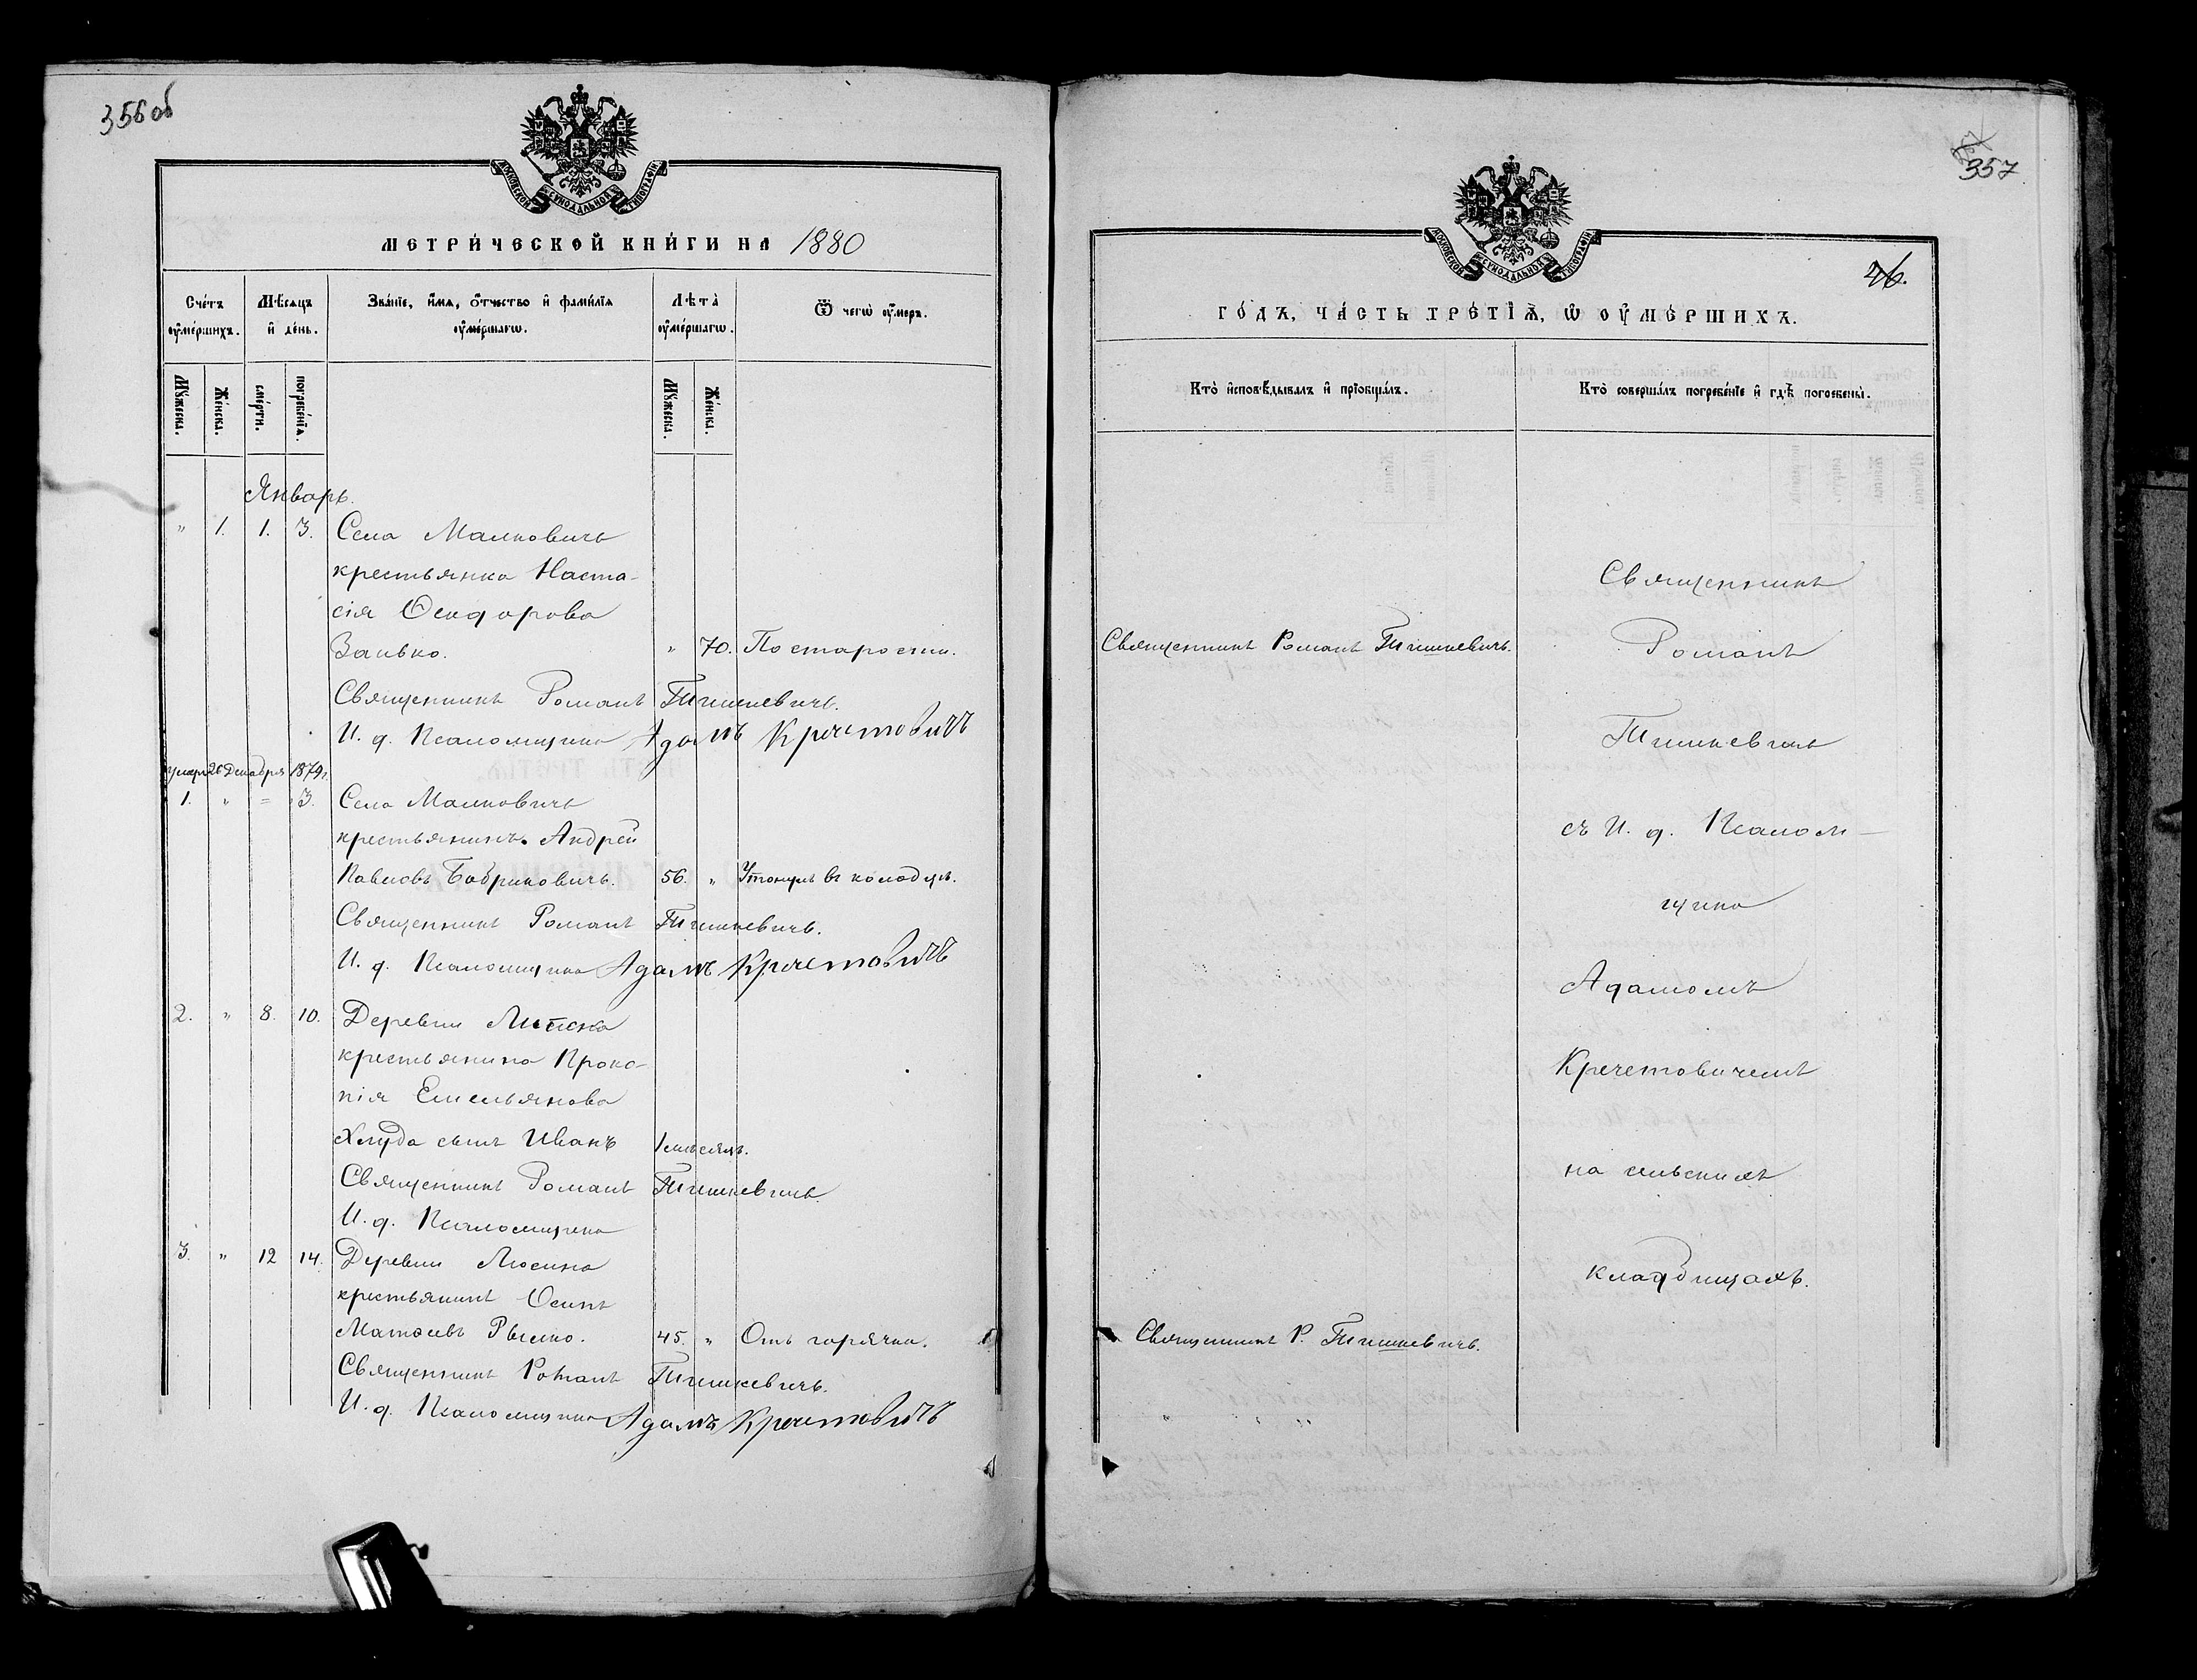 356 об
МОСКОВСКОЙ СУНОДАЛЬНОЙ ТИПОГРАФІИ
МЕТРИ́ЧЕСКОЙ КНИ́ГИ НА 1880
Сче́тъ оу҆ме́ршихъ.
Мѣ́сѧцъ и҆ де́нь.
Зва́нїе, и҆́мѧ, ѻ҆́тчество и҆ фами́лїѧ оу҆ме́ршагѡ.
Лѣ́та оу҆ме́ршагѡ.
Ѿ чегѡ̀ оу҆́меръ.
Мꙋ́жеска.
Же́нска.
сме́рти.
погребе́нїѧ.
Мꙋ́жеска.
Же́нска.
Январь.
" 1. 1. 3. Села Малковичъ
крестьянка Наста-
сія Ѳеодорова
Занько. " 70. По старости.
Священникъ Романъ Тишкевичъ.
И. д. Псаломщика Адамъ Кречетовичъ
умеръ 26 Декабря 1879 г.
1. " = 3. Села Малковичъ
крестьянинъ Андрей
Павловъ Бобриковичъ. 56. " Утонулъ въ колодцѣ.
Священникъ Романъ Тишкевичъ.
И. д. Псаломщика Адамъ Кречетовичъ
2. " 8. 10. Деревни Липска
крестьянина Проко-
пія Емельянова
Хлуда сынъ Иванъ 1 мѣсяцъ.
Священникъ Романъ Тишкевичъ.
И. д. Псаломщика
3. " 12 14. Деревни Люсина
крестьянинъ Осипъ
Матѳеевъ Рышко. 45. " Отъ горячки.
Священникъ Романъ Тишкевичъ.
И. д. Псаломщика Адамъ Кречетовичъ
357
МОСКОВСКОЙ СУНОДАЛЬНОЙ ТИПОГРАФІИ
46.
ГО́ДЪ, ЧА́СТЬ ТРЕ́ТЇѦ, Ѡ҆ ОУ҆МЕ́РШИХЪ.
Кто̀ и҆сповѣ́дывалъ и҆ прїобща́лъ.
Кто̀ соверша́лъ погребе́нїе и҆ гдѣ̀ погребены̀.
Священникъ
Священникъ Романъ Тишкевичъ. Романъ
Тишкевичъ
съ И. д. Псалом-
щика
Адамомъ
Кречетовичемъ
на сельскихъ
кладбищахъ.
Священникъ Р. Тишкевичъ.